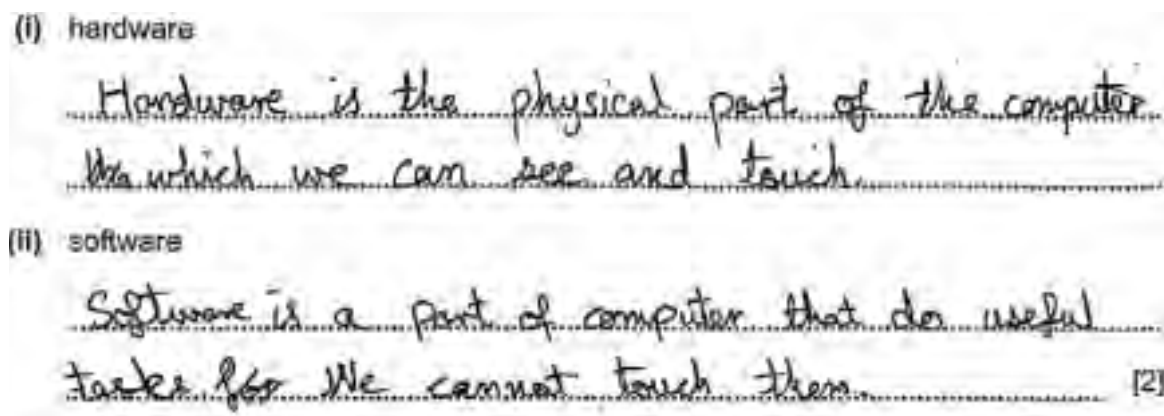 (i) hardware
Hardware is the physical part of the computer
which we can see and touch.
(ii) software
Software is a part of computer that do useful
tasks for We cannot touch them. [2]